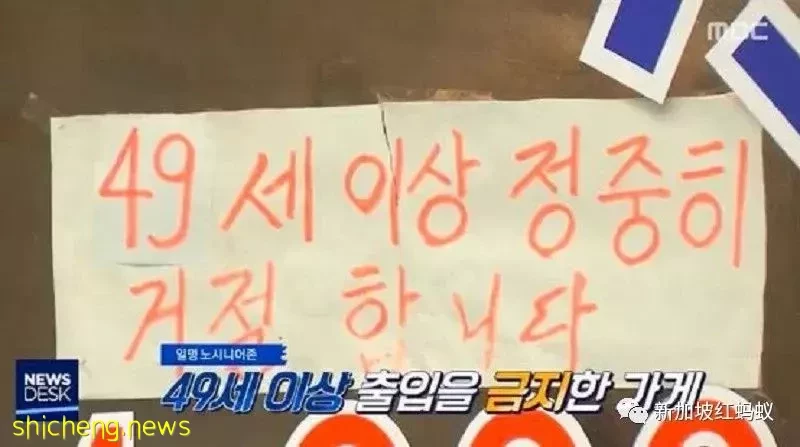 mbc
49세 이상 정중히
거절 합니다
일명 노시니어존
NEWS
DESK
49세 이상 출입을 금지한 가게
shicheng.news
新加坡红蚂蚁